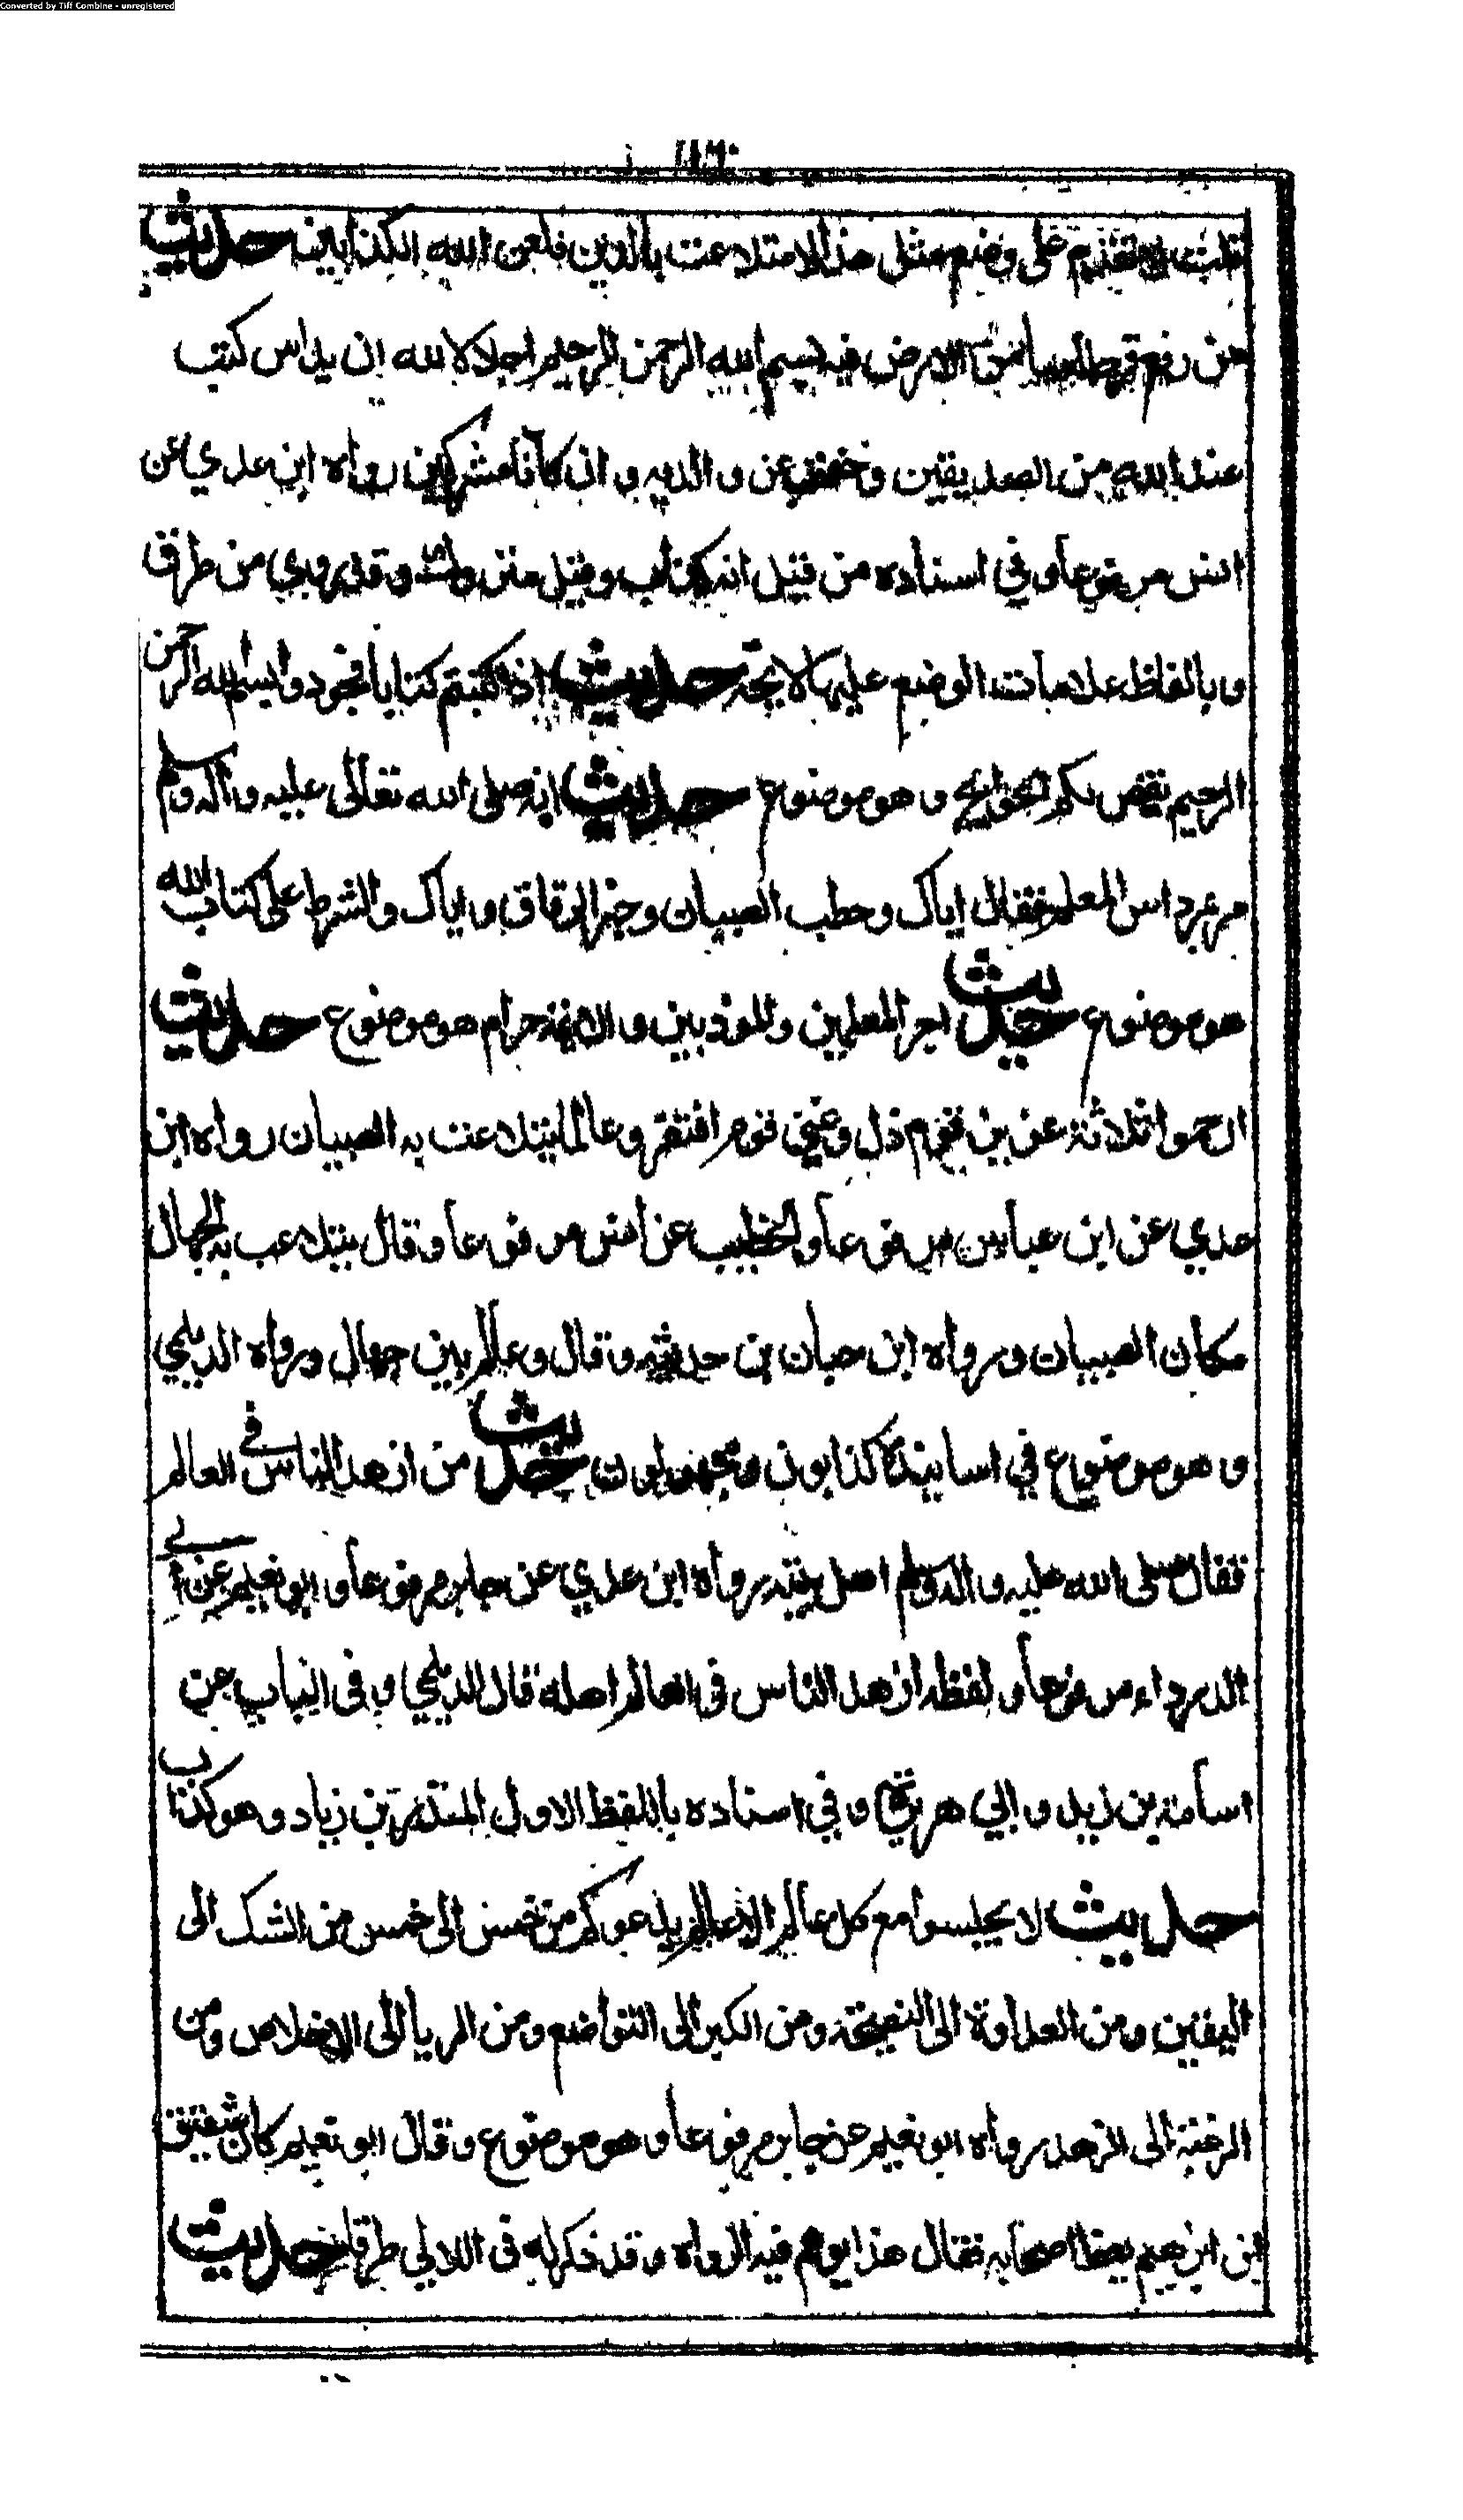 Converted by Tiff Combine - unregistered
على وضع مثل هذا الا متلاعب بالدين فلعن الله الكذابين حديث
من رفع قرطاسا من الارض فيه بسم الله الرحمن الرحيم اجلالا لله ان يداس كتب
عند الله من الصديقين وخفف عن والديه وان كانا مشركين رواه ابن عدي عن
انس مرفوعا وفي اسناده من قيل انه كذاب وقيل متروك وقد روي من طرق
وبالفاظ علامات الوضع عليها لائحة حديث اذا كتبتم كتابا فجودوا بسم الله الرحمن
الرحيم تقض لكم الحوائج وهو موضوع حديث انه صلى الله تعالى عليه وآله وسلم
مر بمرداس المعلم فقال اياك وحطب الصبيان وخبز الرقاق واياك والشرط على كتاب الله
هو موضوع حديث اجر المعلمين والموذنين والائمة حرام هو موضوع حديث
ارحموا ثلاثة عزيز قوم ذل وغني قوم افتقر وعالما يتلاعب به الصبيان رواه ابن
عدي عن ابن عباس مرفوعا والخطيب عن انس مرفوعا وقال يتلاعب به الجهال
مكان الصبيان ورواه ابن حبان من حديثه وقال وعالم بين جهال ورواه الديلمي
وهو موضوع في اسانيده كذابون ومجهولون حديث من ازهد الناس في العالم
فقال صلى الله عليه وآله وسلم اهل بيته رواه ابن عدي عن جابر مرفوعا وابو نعيم عن أبي
الدرداء مرفوعا ولفظه ازهد الناس في العالم اهله قال الديلمي وفي الباب عن
اسامة بن زيد وابي هريرة وفي اسناده باللفظ الاول المنذر بن زياد وهو كذاب
حديث لا تجلسوا مع كل عالم الا عالم يدعوكم من خمس الى خمس من الشك الى
اليقين ومن العداوة الى النصيحة ومن الكبر الى التواضع ومن الريا الى الاخلاص ومن
الرغبة الى الزهد رواه ابو نعيم عن جابر مرفوعا وهو موضوع وقال ابو نعيم كان شقيق
بن ابرهيم يعظ اصحابه فقال هذا فوهم فيه الرواه وقد ذكر له في اللالي طرقا حديث